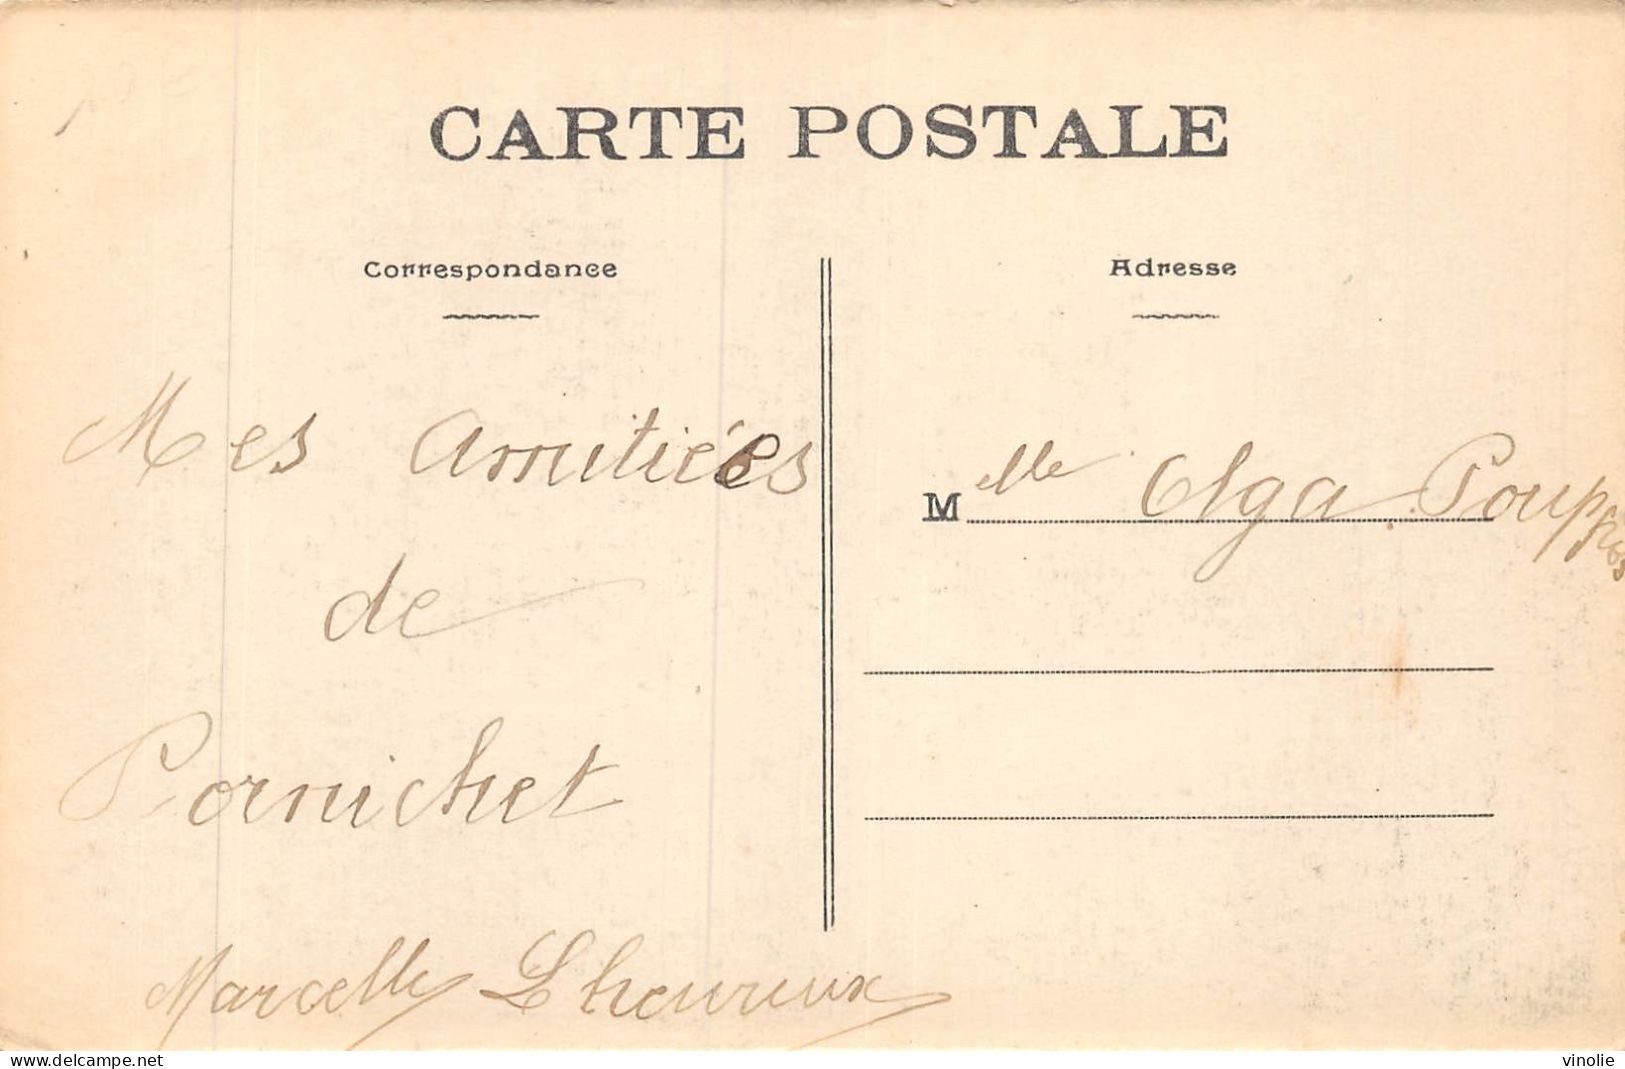 CARTE POSTALE
Correspondance
Adresse
Mes Amitiées
de
Pornichet
Marcelle Lheureux
Melle Olga
www.delcampe.net
vinolie